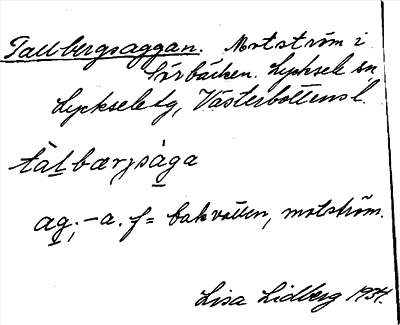 Tallbergsaggan. Motström i
Sörbäcken. Lycksele sn,
Lycksele tg, Västerbottens l.
tàlbærjsàga
ag; -a. f = bakvatten, motström.
Lisa Lidberg 1934.